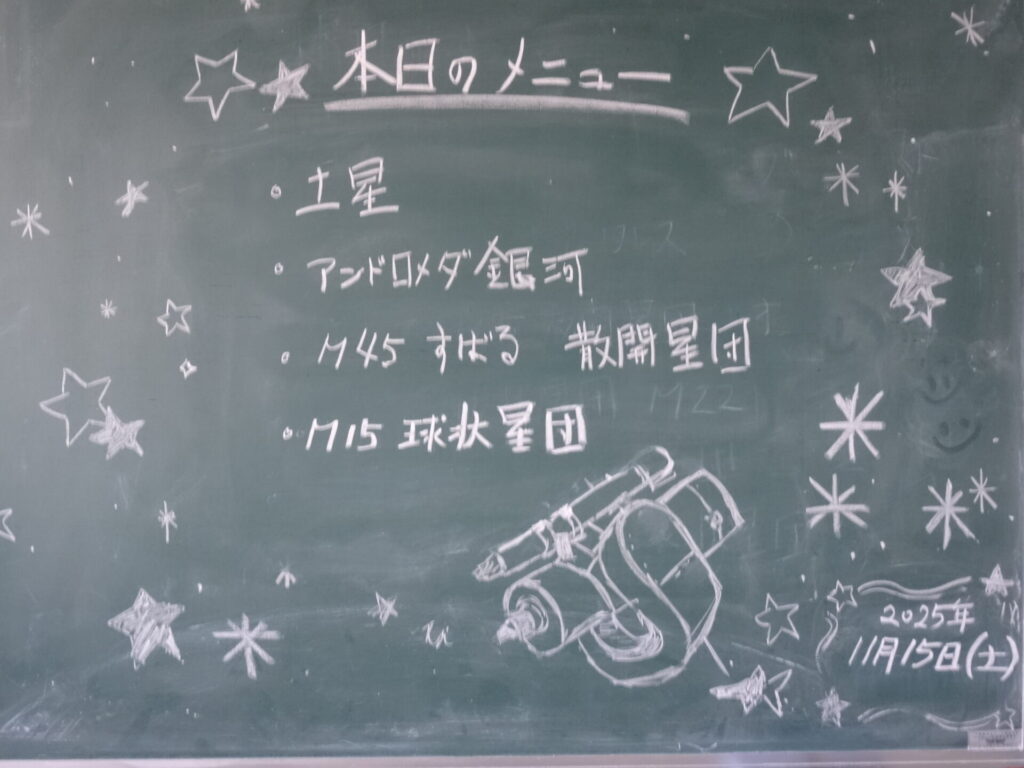 本日のメニュー
・土星
・アンドロメダ銀河
・M45 すばる 散開星団
・M15 球状星団
M22
2025年
11月15日(土)